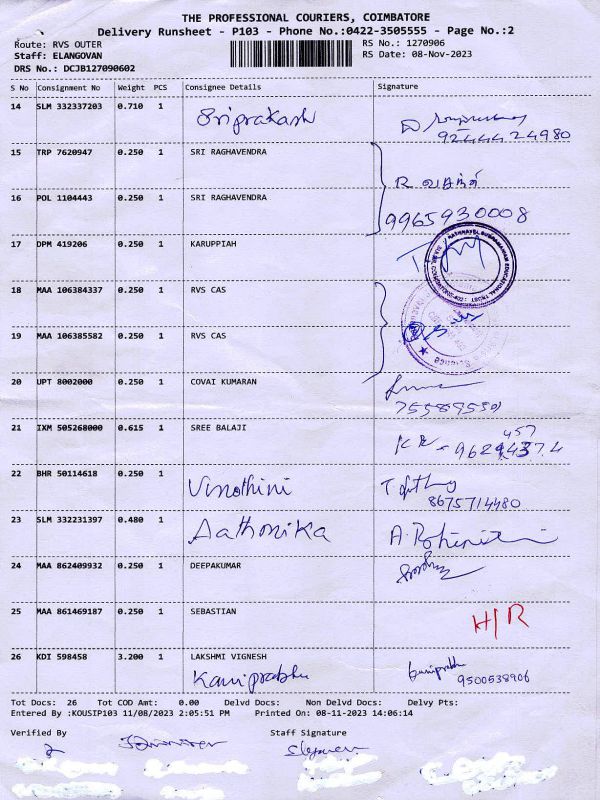 THE PROFESSIONAL COURIERS, COIMBATORE
Delivery Runsheet - P103 - Phone No.:0422-3505555 - Page No.:2
Route: RVS OUTER
RS No.: 1270906
Staff: ELANGOVAN
RS Date: 08-Nov-2023
DRS No.: DCJB127090602
S No Consignment No Weight PCS Consignee Details Signature
14 SLM 332337203 0.710 1 Sriprakash
9244424980
15 TRP 7620947 0.250 1 SRI RAGHAVENDRA
R வசந்தி
16 POL 1104443 0.250 1 SRI RAGHAVENDRA
9965930008
17 DPM 419206 0.250 1 KARUPPIAH
18 MAA 106384337 0.250 1 RVS CAS
19 MAA 106385582 0.250 1 RVS CAS
20 UPT 8002000 0.250 1 COVAI KUMARAN
21 IXM 505268000 0.615 1 SREE BALAJI
22 BHR 50114618 0.250 1 Vinothini
8675714480
23 SLM 332231397 0.480 1 Aathonika
24 MAA 862409932 0.250 1 DEEPAKUMAR
25 MAA 861469187 0.250 1 SEBASTIAN H/R
26 KDI 598458 3.200 1 LAKSHMI VIGNESH
Kaniprabhu
9500538906
Tot Docs: 26 Tot COD Amt: 0.00 Delvd Docs: Non Delvd Docs: Delvy Pts:
Entered By :KOUSIP103 11/08/2023 2:05:51 PM Printed On: 08-11-2023 14:06:14
Verified By Staff Signature